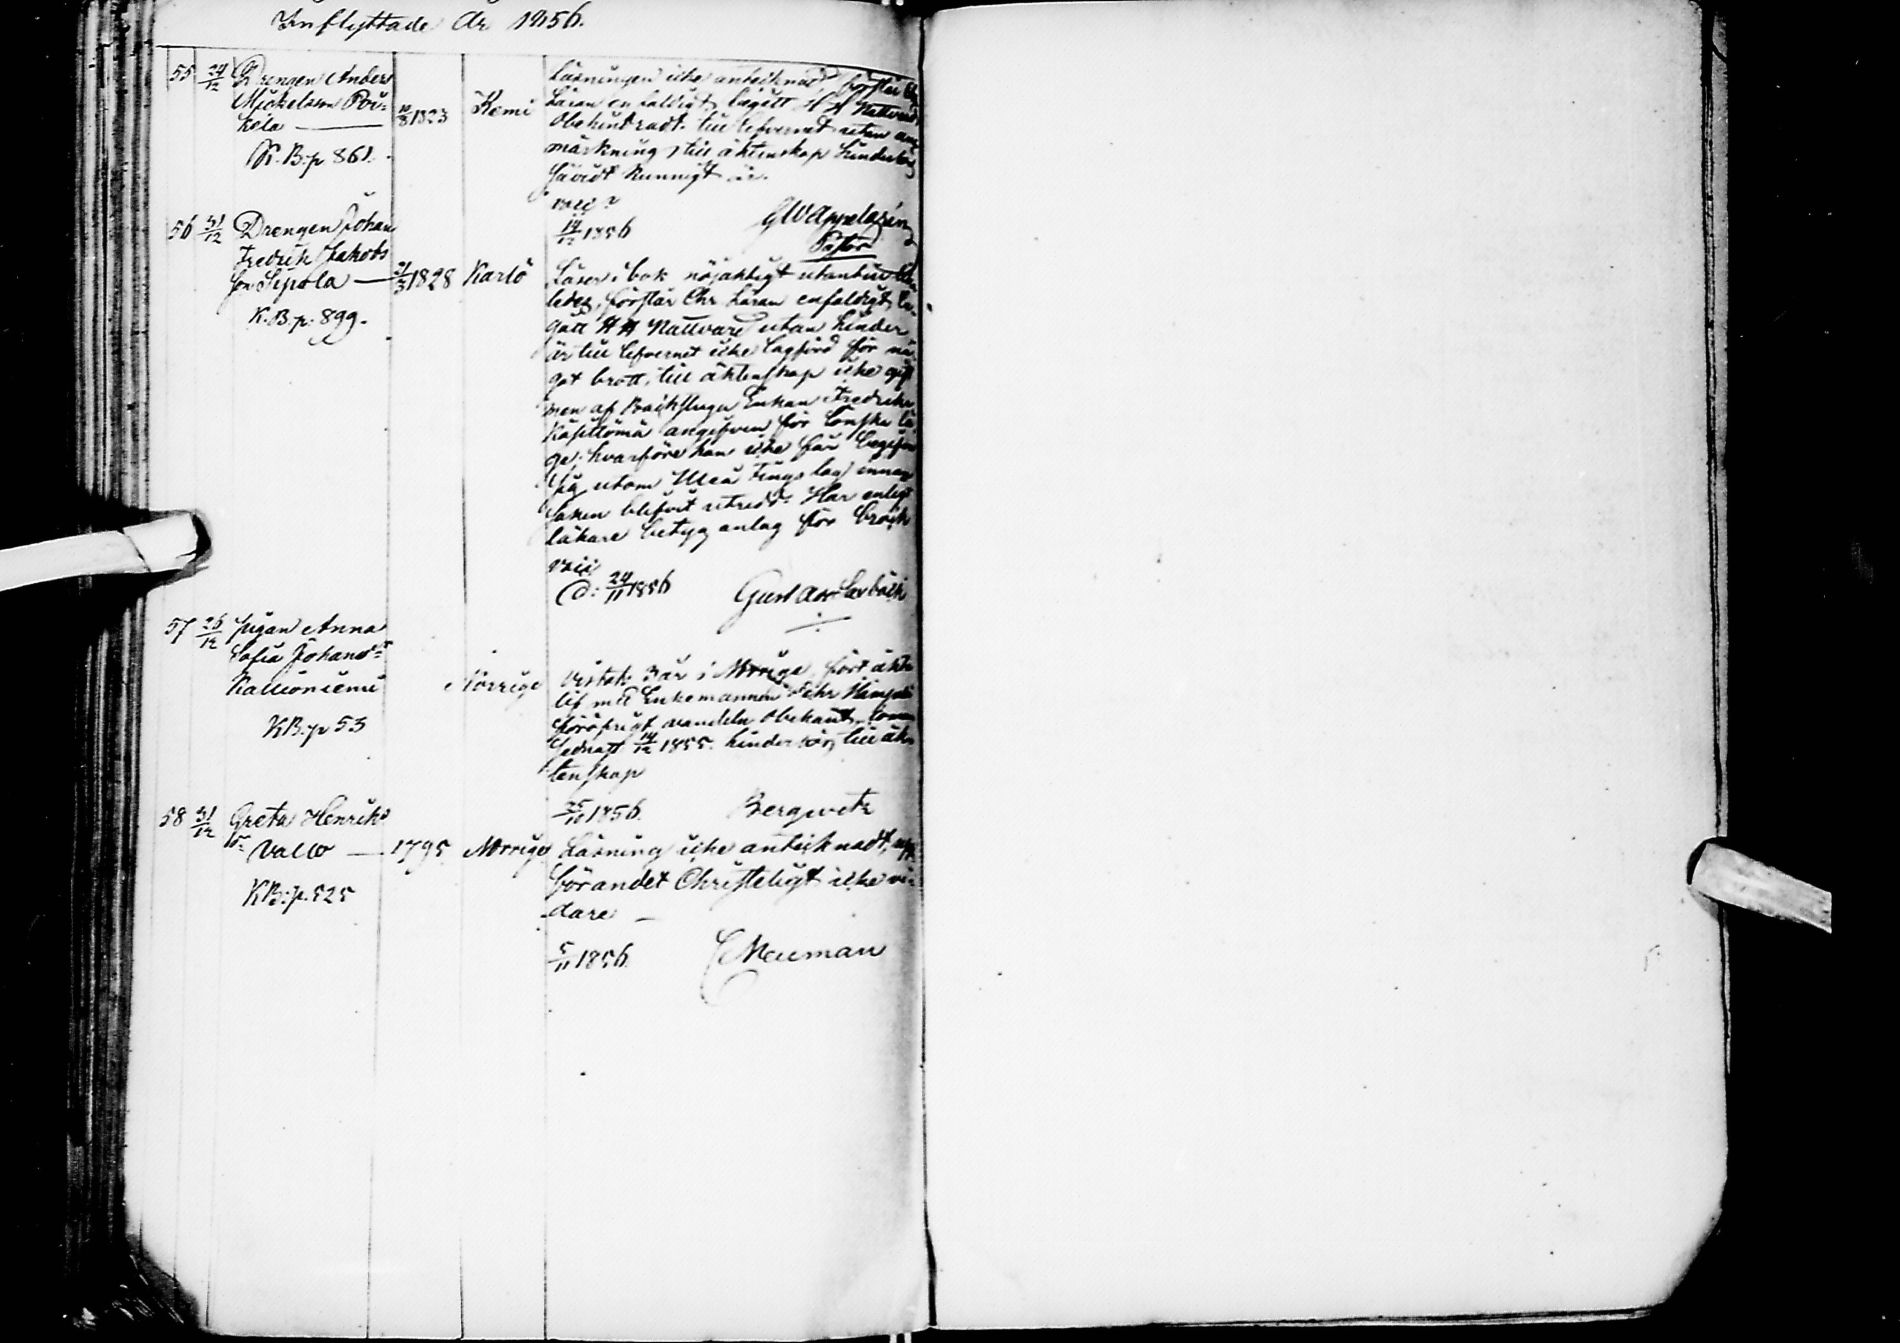 Inflyttade År 1856.
55 24/12 Drengen Anders
Mickelsson Poi-
kela
K.B.p 861.
10/8 1823 Kemi
Läsningen icke antecknad, förstår Chr
Läran enfaldigt, begått H H Nattvard
obehindradt till lefvernet utan an-
märkning, till äktenskap hinderlös
såvidt kunnigt är.
14/12 1856 GWAppelgrén
Pastor
56 31/12 Drengen Johan
Fredrik Jakobs
son Sipola
K.B.p. 899.
21/3 1828 Karlö
Läser i bok nöjaktigt utantill
ledes, förstår Chr Läran enfaldigt, be-
gått H H Nattvard utan hinder
är till lefvernet icke lagförd för nå-
got brott, till äktenskap icke gift
men af Backstugu Enkan Fredrika
angifven för lönska lä-
ge, hvarföre han icke får begifva
sig utom Uleå Tingslag innan
saken blifvit utredd. Har enligt
läkare betyg anlag för bråck
d: 24/11 1856 Gustaf
57 26/12 Pigan Anna
Sofia Johansdr
Kallioniemi
KB.p 53
Norrige
Vistats 3 år i Norrige, fört äkta
lif med Enkemannen Pehr
föröfrigt vandeln obekant, kom
sednast 14/12 1855. hinderlös till äk-
tenskap
25/11 1856. Bergwitz
58 31/12 Greta Henriks
dr Vallo
KB.p. 525
1795 Norrige
Läsning icke antecknadt, upp-
förandet Christeligt icke vi-
dare
5/11 1856. C Neuman